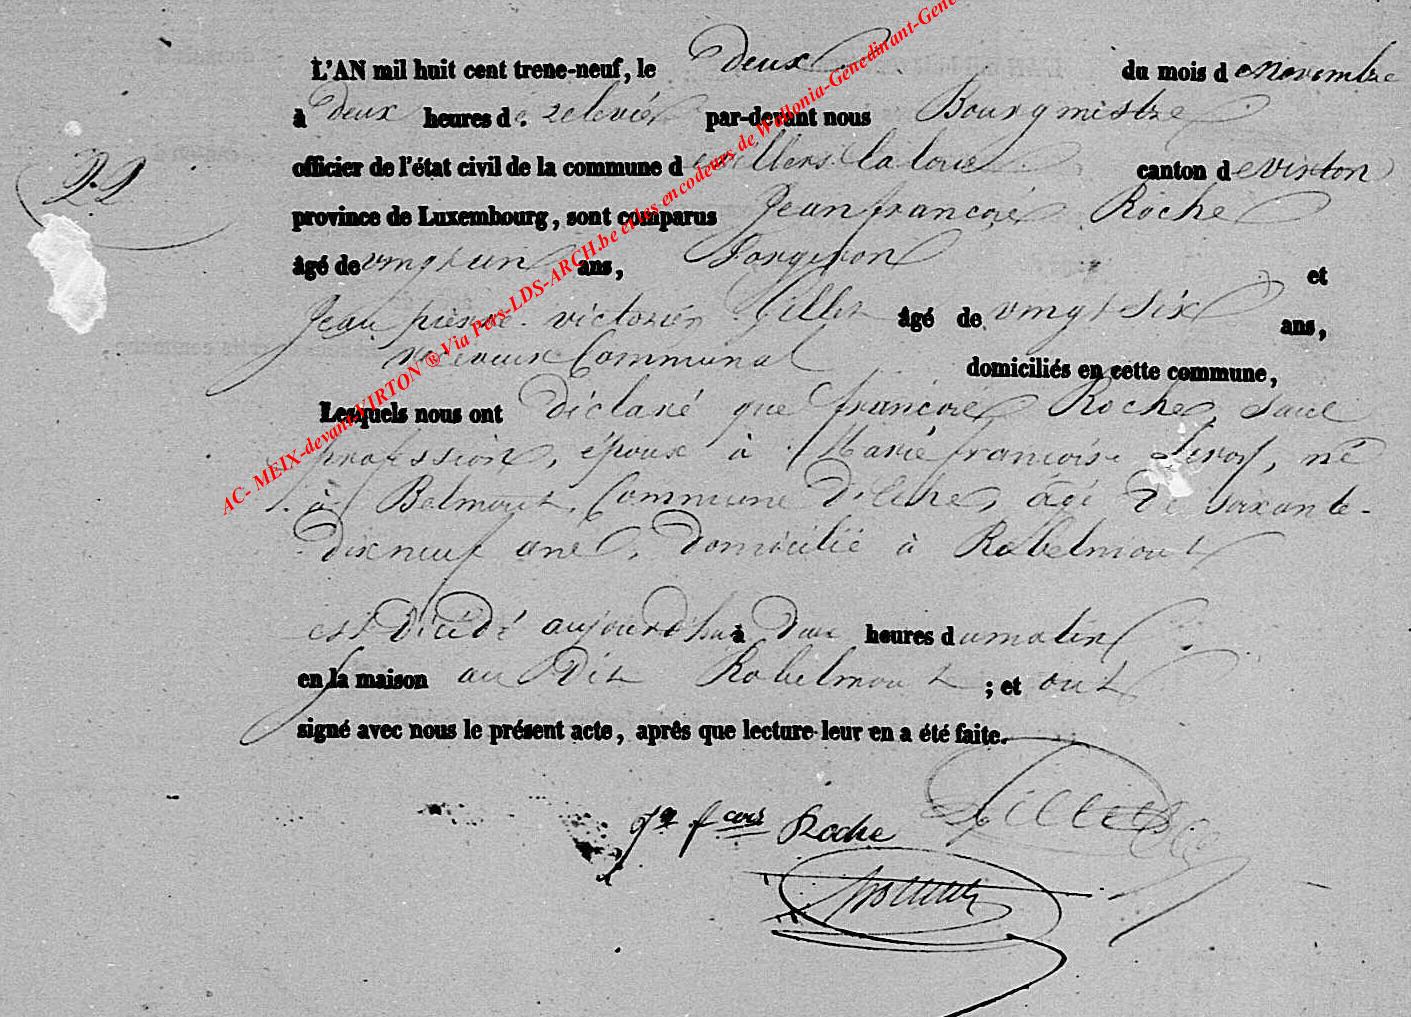 L'AN mil huit cent trene-neuf, le deux du mois de novembre
à deux heures de relevée par-devant nous Bourgmestre
22
officier de l'état civil de la commune de villers la loue canton de virton
province de Luxembourg, sont comparus Jean françois Roche
âgé de vingt un ans, forgeron et
Jean pierre victorien Gillet âgé de vingt six ans,
receveur Communal domiciliés en cette commune,
Lesquels nous ont déclaré que françois Roche, sans
profession, époux à Marie françoise Leroy, né
à Belmont, Commune âgé de soixante-
dix neuf ans, domicilié à Robelmont
est décédé aujourd'hui à deux heures du matin
en la maison au dit Robelmont ; et ont
signé avec nous le présent acte, après que lecture leur en a été faite.
Jn fcois Roche Gillet
AC- MEIX-devant-VIRTON ® Via Pers-LDS-ARCH.be et les encodeurs de Wallonia-Genedinant-Gene